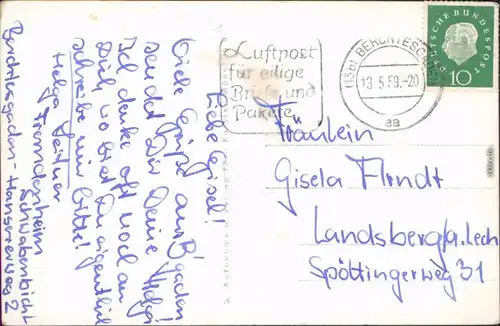 Liebe Gisel!
Viele Grüße aus B'gaden
sendet Dir Deine Helga
Ich denke oft noch an
Dich, wo bist Du eigentlich
schreibe mir bitte!
Helga
Fremdenheim
Schwabenbichl
Berchtesgaden-Hansererweg 2
Luftpost
für eilige
Briefe und
Pakete
(13b) BERCHTESGADEN
13.5.59.-20
aa
DEUTSCHE BUNDESPOST
10
Fräulein
Gisela Arndt
Landsberg/a. Lech
Spöttingerweg 31